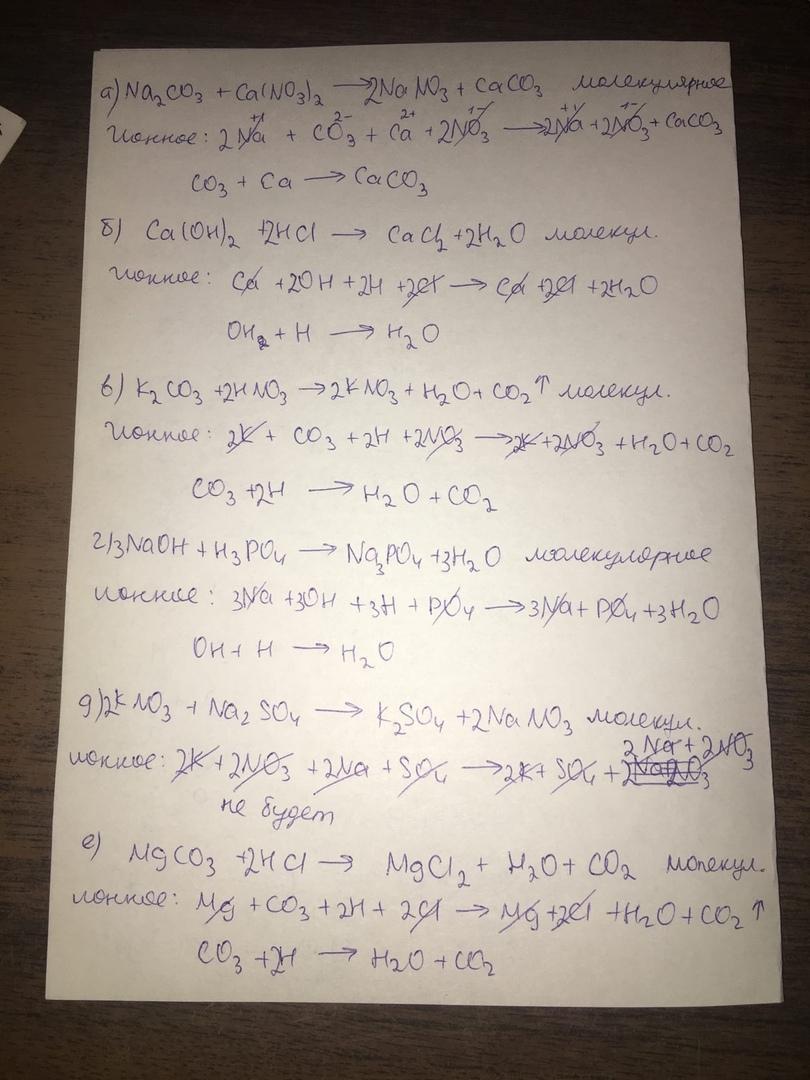 а) Na₂CO₃ + Ca(NO₃)₂ → 2NaNO₃ + CaCO₃ молекулярное
Ионное: 2Na⁺¹ + CO₃²⁻ + Ca²⁺ + 2NO₃¹⁻ → 2Na⁺¹ + 2NO₃¹⁻ + CaCO₃
CO₃ + Ca → CaCO₃
б) Ca(OH)₂ + 2HCl → CaCl₂ + 2H₂O молекул.
Ионное: Ca + 2OH + 2H + 2Cl → Ca + 2Cl + 2H₂O
OH + H → H₂O
в) K₂CO₃ + 2HNO₃ → 2KNO₃ + H₂O + CO₂↑ молекул.
Ионное: 2K + CO₃ + 2H + 2NO₃ → 2K + 2NO₃ + H₂O + CO₂
CO₃ + 2H → H₂O + CO₂
г) 3NaOH + H₃PO₄ → Na₃PO₄ + 3H₂O молекулярное
ионное: 3Na + 3OH + 3H + PO₄ → 3Na + PO₄ + 3H₂O
OH + H → H₂O
д) 2KNO₃ + Na₂SO₄ → K₂SO₄ + 2NaNO₃ молекул.
ионное: 2K + 2NO₃ + 2Na + SO₄ → 2K + SO₄ + 2Na + 2NO₃
не будет
е) MgCO₃ + 2HCl → MgCl₂ + H₂O + CO₂ молекул.
ионное: Mg + CO₃ + 2H + 2Cl → Mg + 2Cl + H₂O + CO₂↑
CO₃ + 2H → H₂O + CO₂